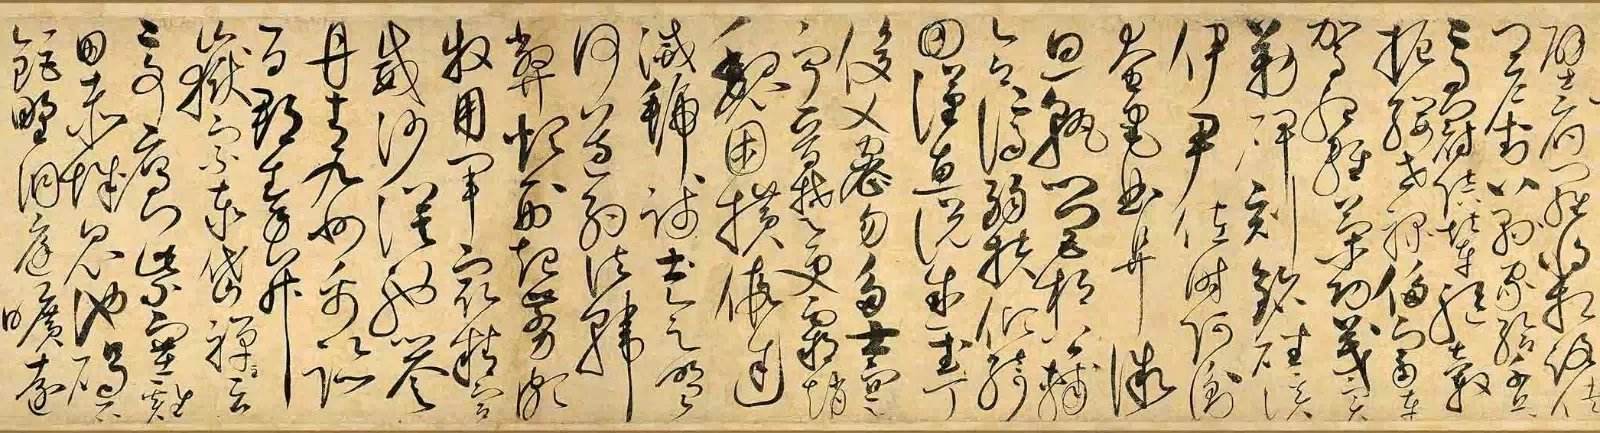 壁經府羅將相路俠
槐卿戶封八縣家給千兵
高冠陪輦驅轂
振纓世祿侈富車
駕肥輕策功茂實
勒碑刻銘磻溪
伊尹佐時阿衡
奄宅曲阜微
旦孰營桓公輔
合濟弱扶傾綺
回漢惠說感武丁
俊乂密勿多士寔
寧晉楚更霸趙
魏困橫假途
滅虢踐土會盟
何遵約法韓
弊煩刑起翦頗
牧用軍最精宣
威沙漠馳譽
丹青九州禹跡
百郡秦并
嶽宗泰岱禪主云
亭雁門紫塞雞
田赤城昆池碣石
鉅野洞庭曠遠